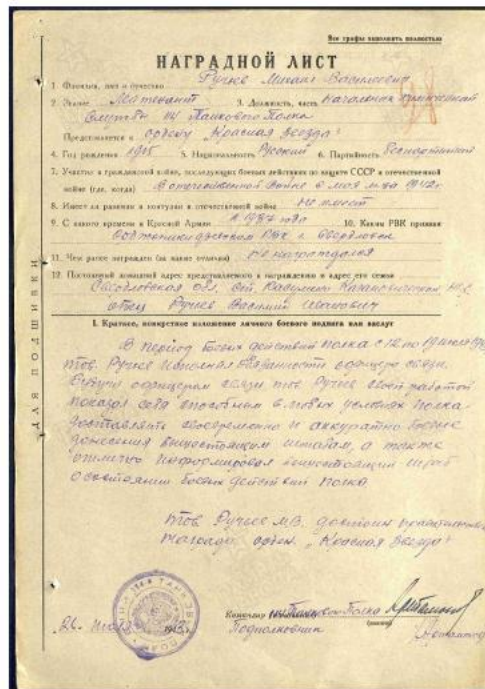 Все графы заполнять полностью
НАГРАДНОЙ ЛИСТ
1. Фамилия, имя и отчество Ручьев Михаил Васильевич
2. Звание Лейтенант 3. Должность, часть начальник химической
службы 114 Танкового Полка
Представляется к ордену "Красная звезда"
4. Год рождения 1915 5. Национальность Русский 6. Партийность Беспартийный
7. Участие в гражданской войне, последующих боевых действиях по защите СССР и отечественной
войне (где, когда) В отечественной войне с мая м-ца 1942г.
8. Имеет ли ранения и контузии в отечественной войне Не имеет
9. С какого времени в Красной Армии с 1937 года 10. Каким РВК призван
РВК г. Свердловск
11. Чем ранее награжден (за какие отличия) Не награждался
12. Постоянный домашний адрес представляемого к награждению и адрес его семьи
Свердловская обл. ст.
отец Ручьев Василий Иванович
ДЛЯ ПОДШИВКИ
I. Краткое, конкретное изложение личного боевого подвига или заслуг
В период боевых действий полка с 12 по 19 июля
тов. Ручьев исполнял обязанности офицера связи.
Будучи офицером связи тов. Ручьев своей работой
показал себя способным в любых условиях полка
доставлять своевременно и аккуратно боевые
донесения вышестоящим штабам, а также
отлично информировал вышестоящий штаб
о состоянии боевых действий полка.
тов. Ручьев М.В. достоин правительственной
награды орден "Красная звезда"
Командир 114 Танкового Полка
Подполковник
26. июля